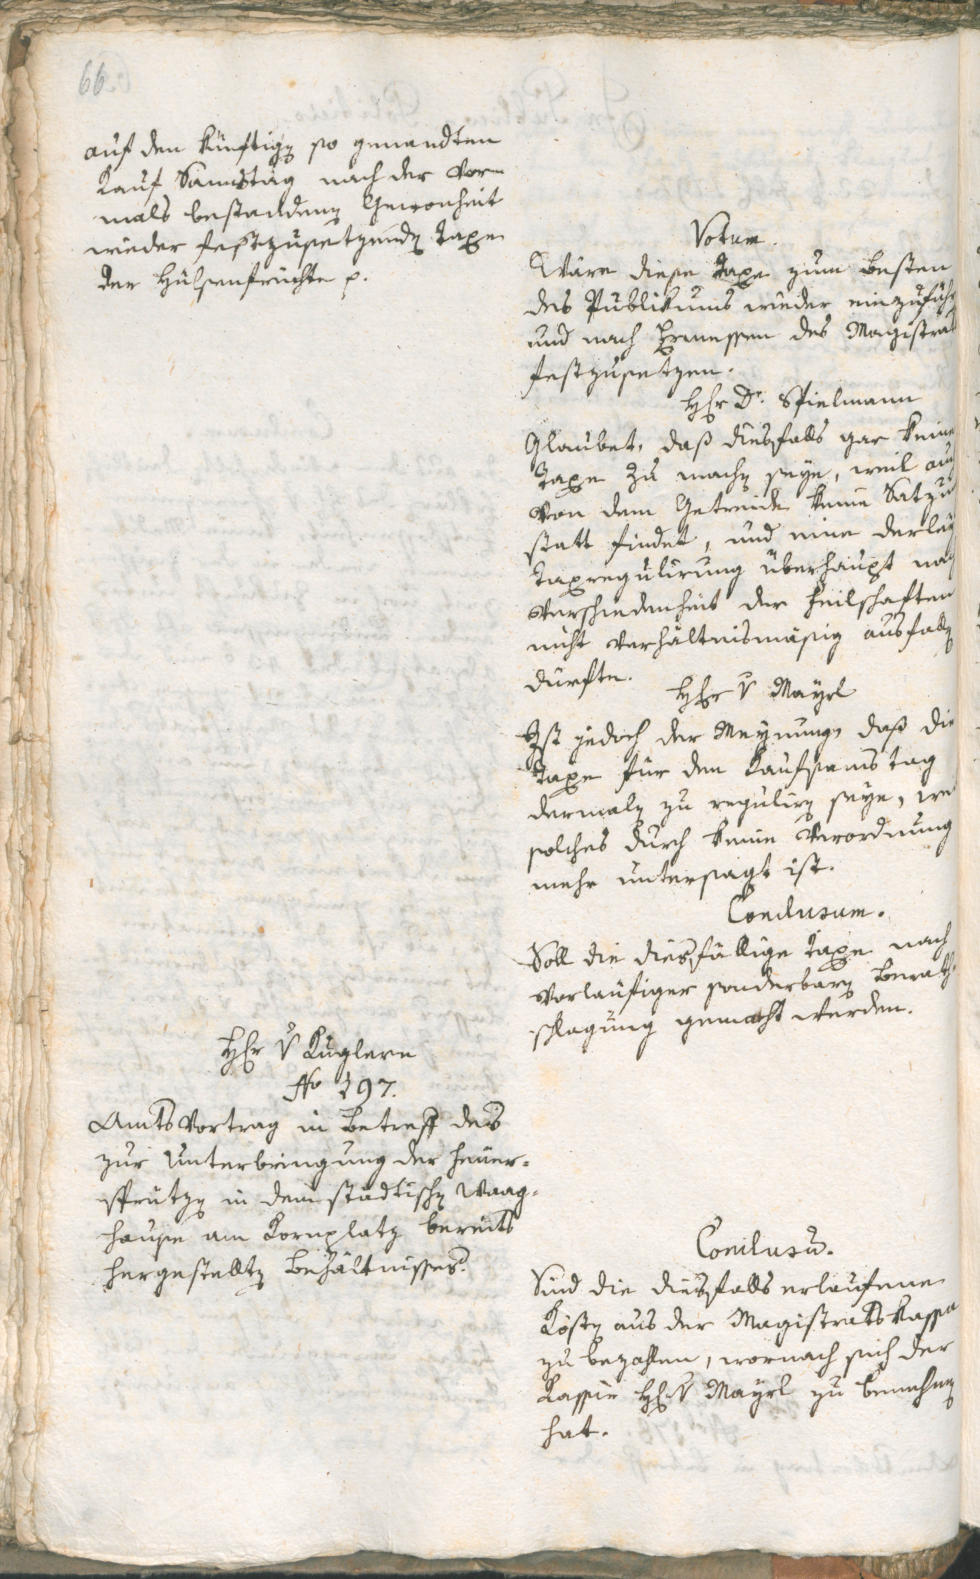 66
auf den künftigen so genandten
Kauf Samstag nach der vor-
mals bestandenen Gewonheit
wieder festzusetzenden Taxe
der Hülsenfrüchte p.
Votum.
Wäre diese Taxe zum besten
des Publikums wieder einzuführ
und nach Ermessen des Magistrat
festzusetzen.
Hr Dr. Spielmann
Glaubet, daß diesfalls gar keine
Taxe zu machen seye, weil auch
von dem Getreide keine Satzu
statt findet, und eine derley
Taxregulirung überhaupt nach
Verschiedenheit der Feilschaften
nicht verhältnismäsig ausfallen
dürfte.
Hr v Mayrl
Ist jedoch der Meynung, daß die
Taxe für den Kaufsamstag
dermalen zu reguliren seye, we
solches durch keine Verordnung
mehr untersagt ist.
Conclusum.
Soll die diesfällige Taxe nach
vorläufiger sonderbaren Berath-
schlagung gemacht werden.
Hr v Kuglern
No 197.
Amts Vortrag in Betreff des
zur Unterbringung der Feuer-
sprützen in dem städtischen Waag-
hause am Kornplatz bereits
hergestellten Behältnisses.
Conclusu.
Sind die diesfalls erlaufene
Kösten aus der Magistrats Kassa
zu bezahlen, wornach sich der
Kassier Hr v Mayrl zu benehmen
hat.